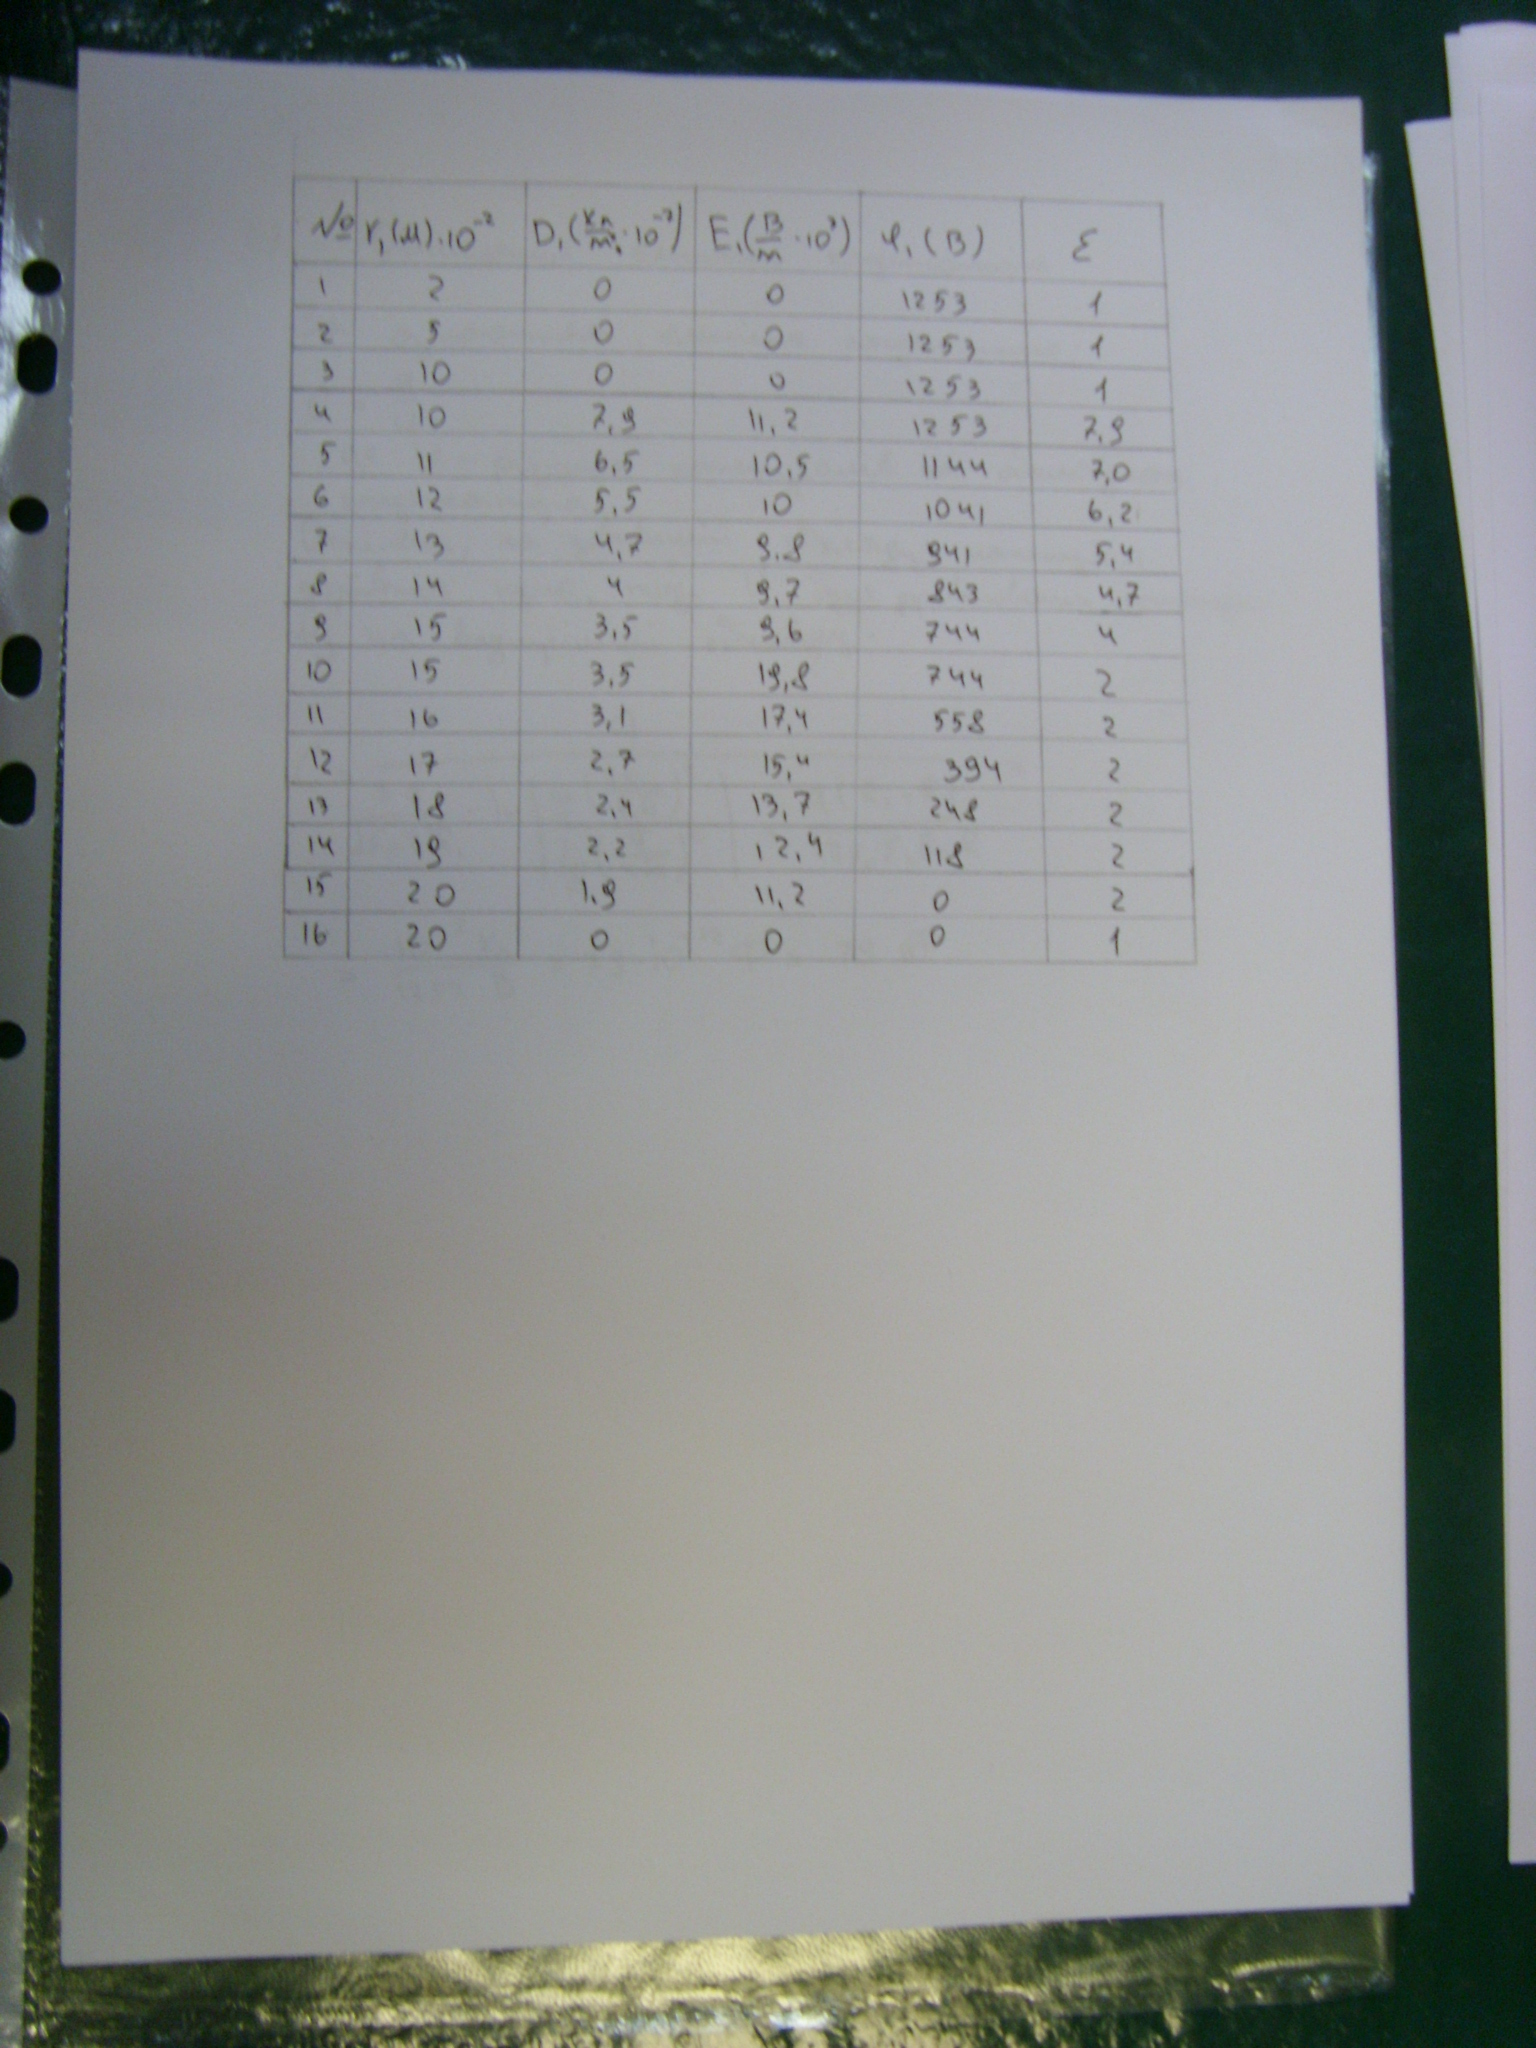 № r,(м)·10⁻² D,(Кл/м²·10⁻⁷) E,(В/м·10³) φ,(В) ε
1 2 0 0 1253 1
2 5 0 0 1253 1
3 10 0 0 1253 1
4 10 7,9 11,2 1253 7,9
5 11 6,5 10,5 1144 7,0
6 12 5,5 10 1041 6,2
7 13 4,7 9.8 941 5,4
8 14 4 9,7 843 4,7
9 15 3,5 9,6 744 4
10 15 3,5 19,8 744 2
11 16 3,1 17,4 558 2
12 17 2,7 15,4 394 2
13 18 2,4 13,7 248 2
14 19 2,2 12,4 118 2
15 20 1.9 11,2 0 2
16 20 0 0 0 1